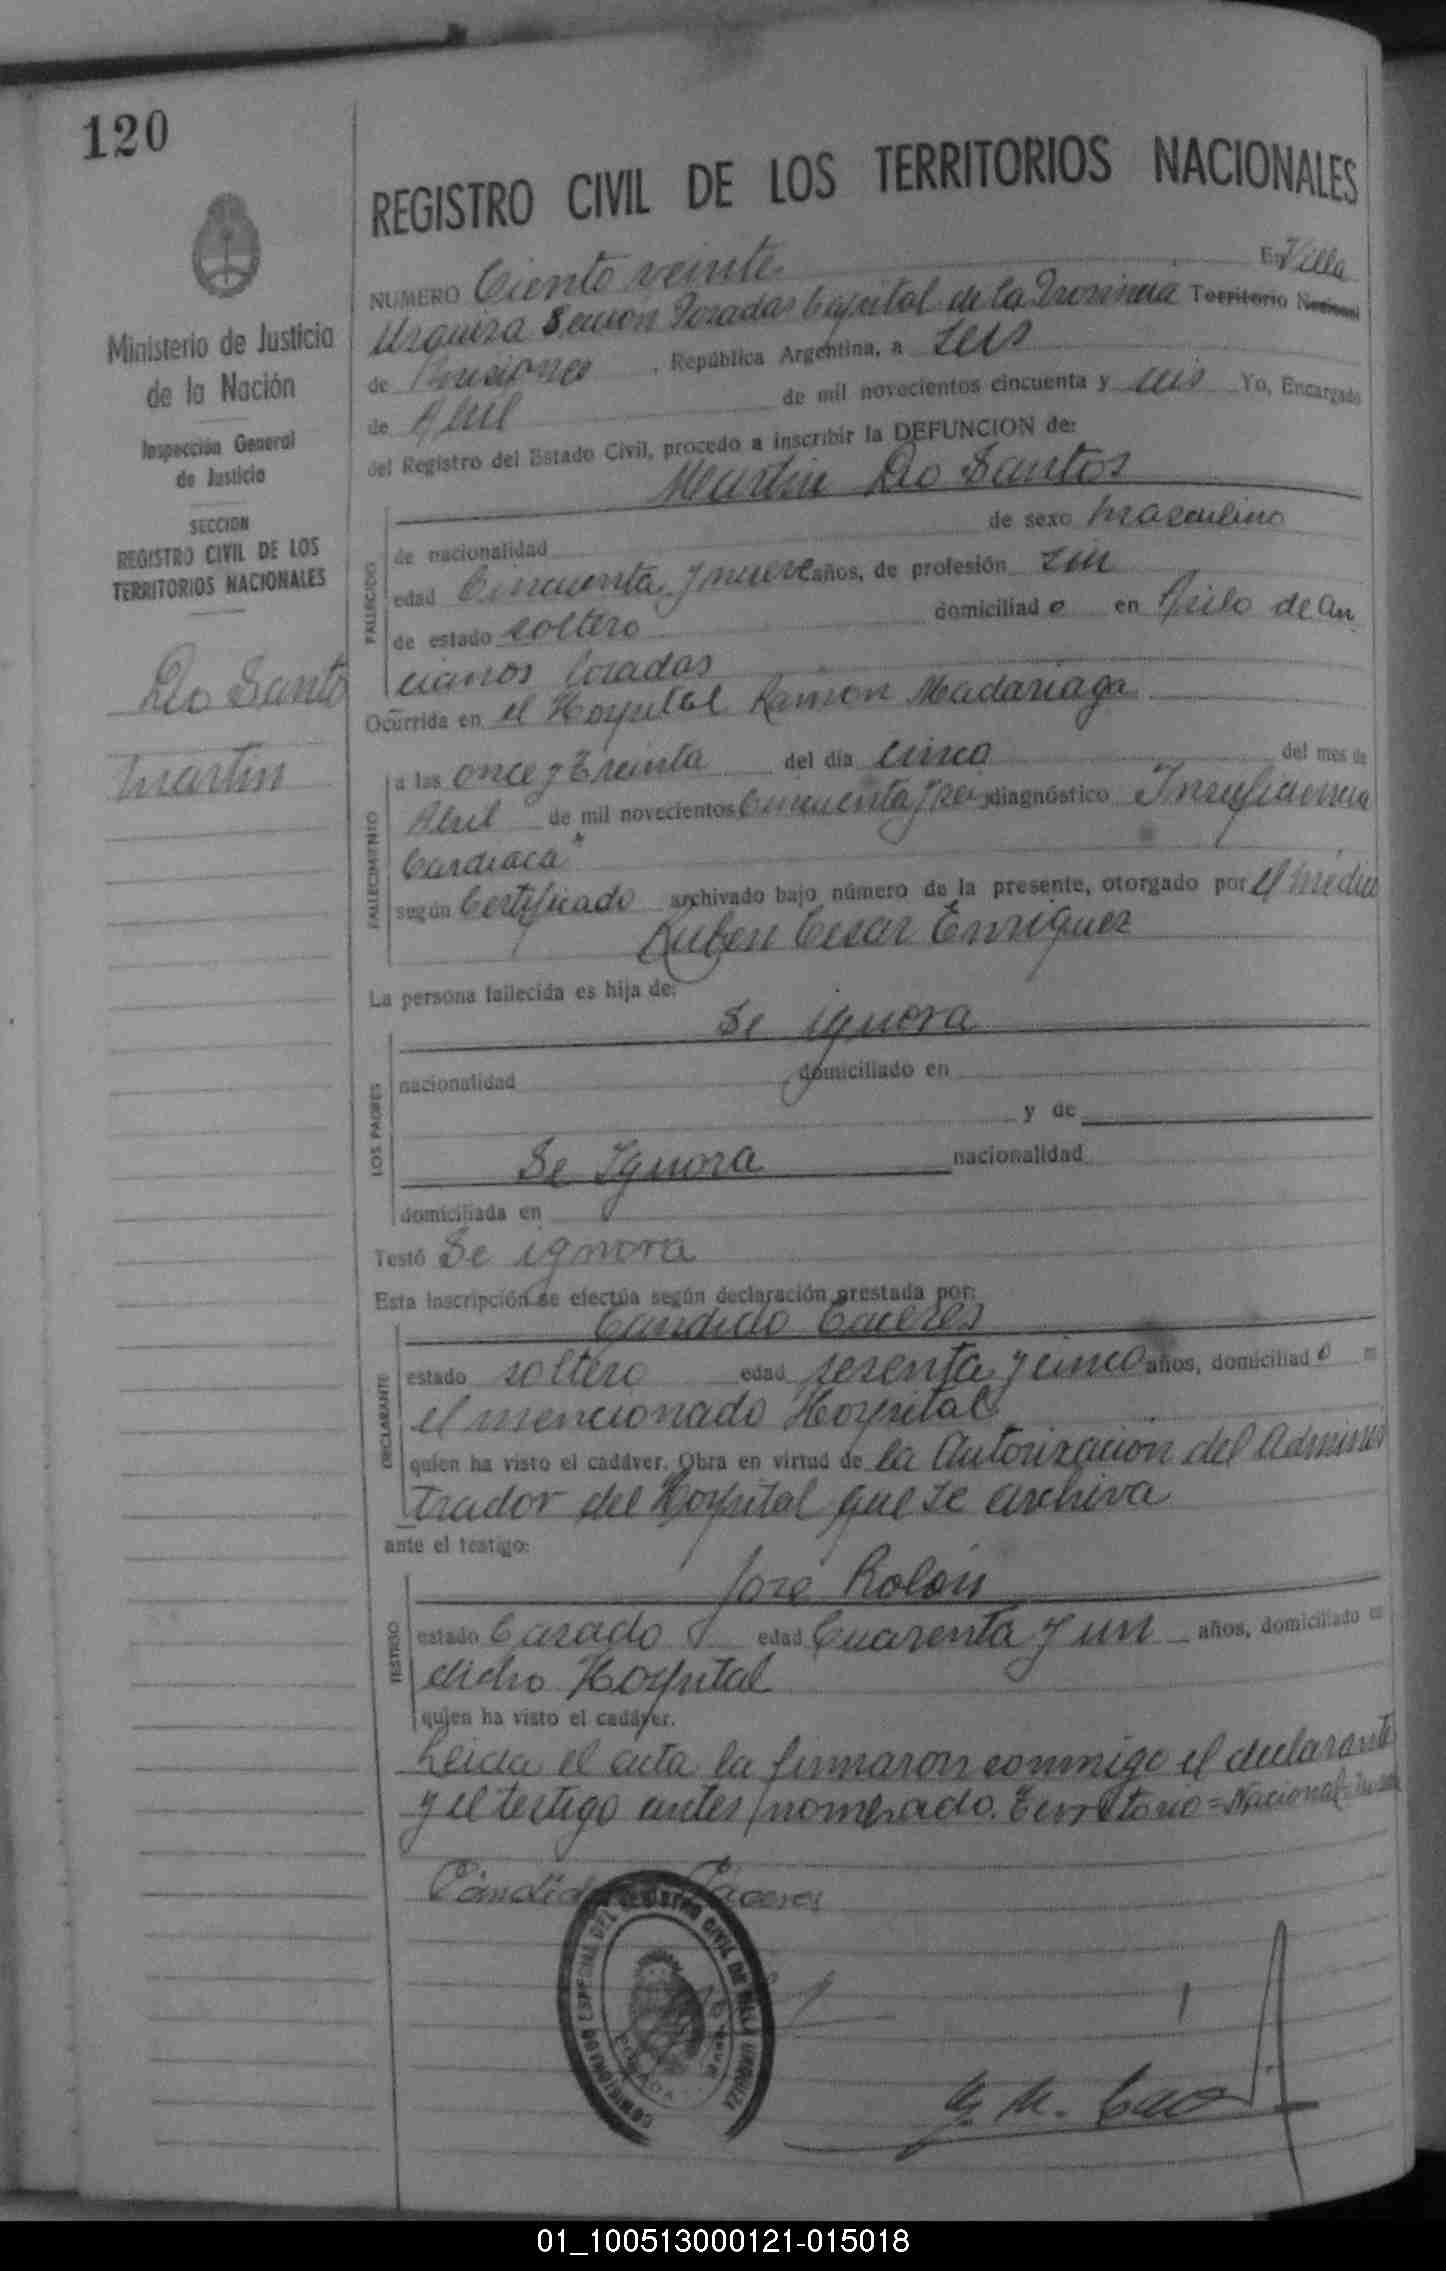 120
REGISTRO CIVIL DE LOS TERRITORIOS NACIONALES
Ministerio de Justicia
de la Nación
Inspección General
de Justicia
SECCION
REGISTRO CIVIL DE LOS
TERRITORIOS NACIONALES
Do Santo
Martin
NUMERO Ciento veinte En Villa
Urquiza Seccion Posadas Capital de la Provincia Territorio Nacional
de Misiones, República Argentina, a seis
de Abril de mil novecientos cincuenta y seis Yo, Encargado
del Registro del Estado Civil, procedo a inscribir la DEFUNCION de:
Martin Do Santos
FALLECIDO
de nacionalidad de sexo masculino
edad Cincuenta y nueve años, de profesión sin
de estado soltero domiciliado en Asilo de An
cianos Posadas
Ocurrida en el Hospital Ramon Madariaga
FALLECIMIENTO
a las once y treinta del día cinco del mes de
Abril de mil novecientos Cincuenta y seis diagnóstico Insuficiencia
Cardiaca"
según Certificado archivado bajo número de la presente, otorgado por el médico
Ruben Cesar Enriquez
La persona fallecida es hija de:
Se ignora
LOS PADRES
nacionalidad domiciliado en
y de
Se Ignora nacionalidad
domiciliada en
Testó Se ignora
Esta inscripción se efectúa según declaración prestada por:
Candido Caceres
DECLARANTE
estado soltero edad sesenta y cinco años, domiciliado en
el mencionado Hospital
quien ha visto el cadáver. Obra en virtud de la Autorizacion del Adminis
trador del Hospital que se archiva
ante el testigo:
José Rolón
TESTIGO
estado Casado edad Cuarenta y un años, domiciliado en
dicho Hospital
quien ha visto el cadáver.
Leida el acta la firmaron conmigo el declarante
y el testigo antes nombrado. Territorio=Nacional
Candido Caceres
REGISTRO CIVIL DE VILLA URQUIZA
POSADAS
01_100513000121-015018